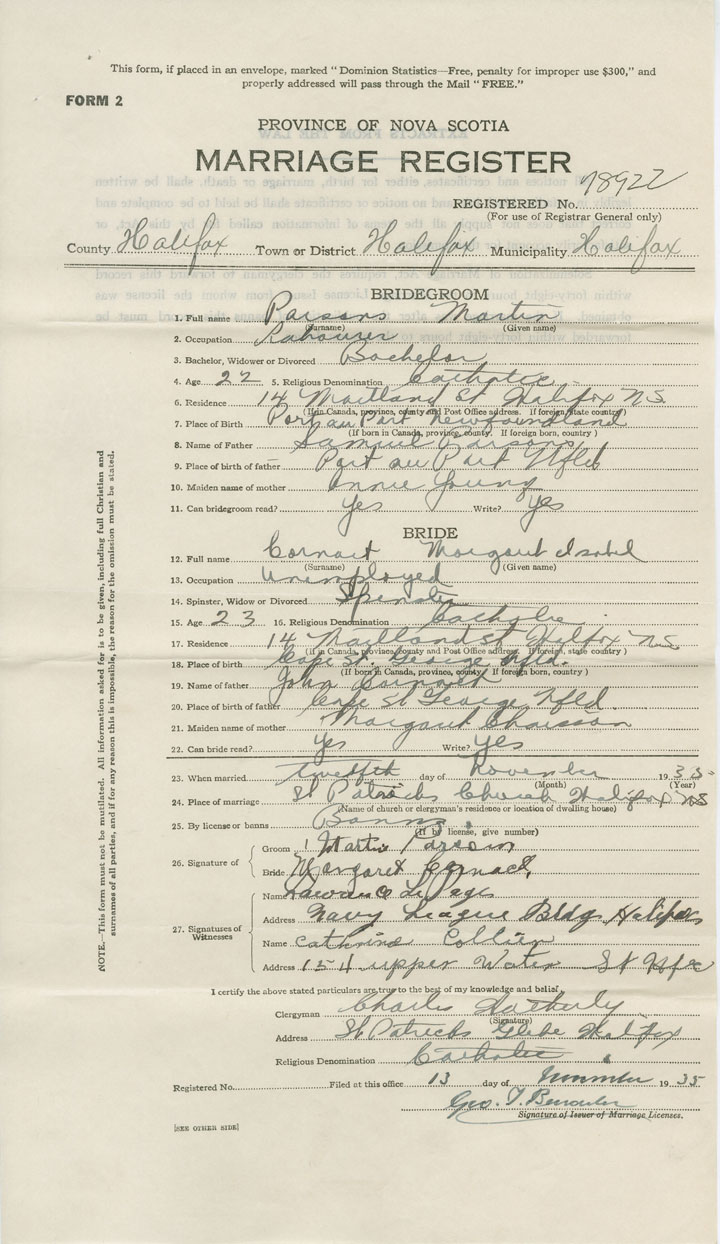 This form, if placed in an envelope, marked "Dominion Statistics—Free, penalty for improper use $300," and
properly addressed will pass through the Mail "FREE."
FORM 2
PROVINCE OF NOVA SCOTIA
MARRIAGE REGISTER
REGISTERED No. 78922
(For use of Registrar General only)
County Halifax Town or District Halifax Municipality Halifax
BRIDEGROOM
1. Full name Parsons Martin
(Surname) (Given name)
2. Occupation Labourer
3. Bachelor, Widower or Divorced Bachelor
4. Age 22 5. Religious Denomination Catholic
6. Residence 14 Maitland St Halifax N.S.
(If in Canada, province, county and Post Office address. If foreign state country)
7. Place of Birth Port au Port Newfoundland
(If born in Canada, province, county. If foreign born, country)
8. Name of Father Samuel Parsons
9. Place of birth of father Port au Port Nfld
10. Maiden name of mother Annie Young
11. Can bridegroom read? Yes Write? Yes
BRIDE
12. Full name Cornact Margaret Isabel
(Surname) (Given name)
13. Occupation Unemployed
14. Spinster, Widow or Divorced Spinster
15. Age 23 16. Religious Denomination Catholic
17. Residence 14 Maitland St Halifax N.S.
(if in Canada, province, county and Post Office address. If foreign, state country)
18. Place of birth Cape St. George Nfld.
(If born in Canada, province, county. If foreign born, country)
19. Name of father John
20. Place of birth of father Cape St George Nfld.
21. Maiden name of mother Margaret Chaisson
22. Can bride read? Yes Write? Yes
23. When married twelfth day of November 1935
(Month) (Year)
24. Place of marriage St Patricks Church Halifax NS
(Name of church or clergyman's residence or location of dwelling house)
25. By license or banns Banns
(If by license, give number)
26. Signature of
Groom Martin Parsons
Bride Margaret Cornact
27. Signatures of Witnesses
Name Lawrance LePages
Address Navy League Bldg Halifax
Name Cathrine Collier
Address 154 upper Water St Hfx
I certify the above stated particulars are true to the best of my knowledge and belief
Clergyman Charles
(Signature)
Address St Patricks Glebe Halifax
Religious Denomination Catholic
Registered No. Filed at this office 13 day of November 1935
Geo. T.
Signature of Issuer of Marriage Licenses.
[SEE OTHER SIDE]
NOTE.—This form must not be mutilated. All information asked for is to be given, including full Christian and
surnames of all parties, and if for any reason this is impossible, the reason for the omission must be stated.